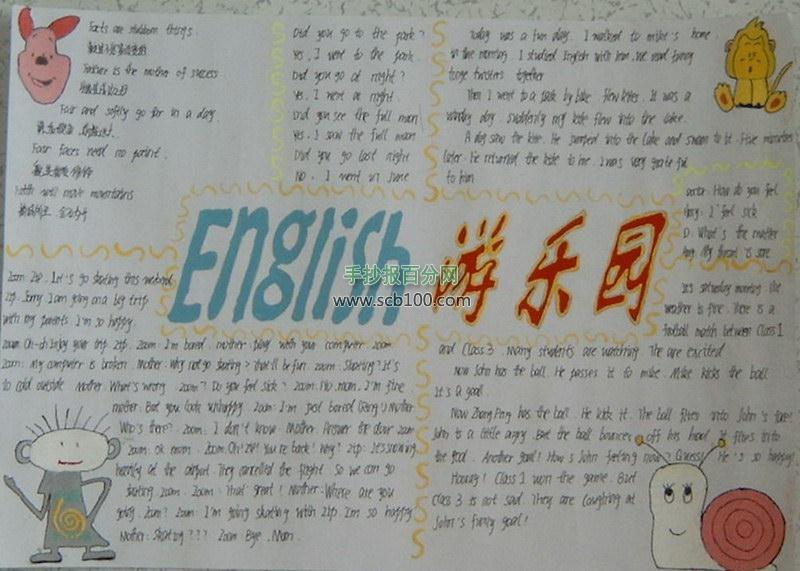 Facts are stubborn things.
Failure is the mother of success
Fair and softly go far in a day.
Fair faces need no paint.
Faith will move mountains
Did you go to the park?
Yes, I went to the park.
Did you go at night?
Yes, I went at night.
Did you see the full moon
Yes, I saw the full moon
Did you go last night
No, I went in June
Today was a fun day. I walked to mike's home
in the morning. I studied English with him. We read funny
tonge twisters together
Then I went to a park by lake flew kites. It was a
windy day. suddenly my kite flew into the lake.
A dog saw the kite. He jumped into the lake and swam to it. Five minutes
later. He returned the kite to me. I was very grateful
to him
English 游乐园
手抄报百分网
www.scb100.com
Doctor: How do you feel
Boy: I feel sick
D: What's the matter
Boy: My throat is sore
Zoom: Zip. Let's go skating this weekend
Zip: Sorry I am going on a big trip
with my parents. I'm so happy.
Zoom: Oh-oh Enjoy your trip Zip. Zoom: I'm bored. mother: play with your computer zoom.
Zoom: my computer is broken. Mother: Why not go skating? that'll be fun. Zoom: Skating? It's
to cold outside Mother What's wrong. Zoom? Do you feel sick? Zoom: No, mom, I'm fine
mother: But you look unhappy. Zoom: I'm just bored Mother
Who's there? Zoom: I don't know. Mother: Answer the door Zoom
Zoom: ok mom. Zoom: Oh! Zip! You're back! Why? Zip: It's snowing
heavily at the airport. They cancelled the flight. So we can go
skating. Zoom: That' great! Mother: Where are you
going, Zoom? Zoom: I'm going skating with Zip. I'm so happy
Mother: Skating??? Zoom Bye. Mom.
It's saturday morning the
weather is fine. There is a
football match between Class 1
and Class 3. Many students are watching. The are excited.
Now John has the ball. He passes it to mike. Mike kicks the ball
It's a goal.
Now Zhang Ping has the ball. He kick it. The ball flies into John's face!
John is a little angry. But the ball bounces off his head. It flies into
the goal. Another goal! How's John feeling now? Guess! He's so happy!
Hooray! Class 1 won the game. But
Class 3 is not sad. They are laughing at
John's funny goal!